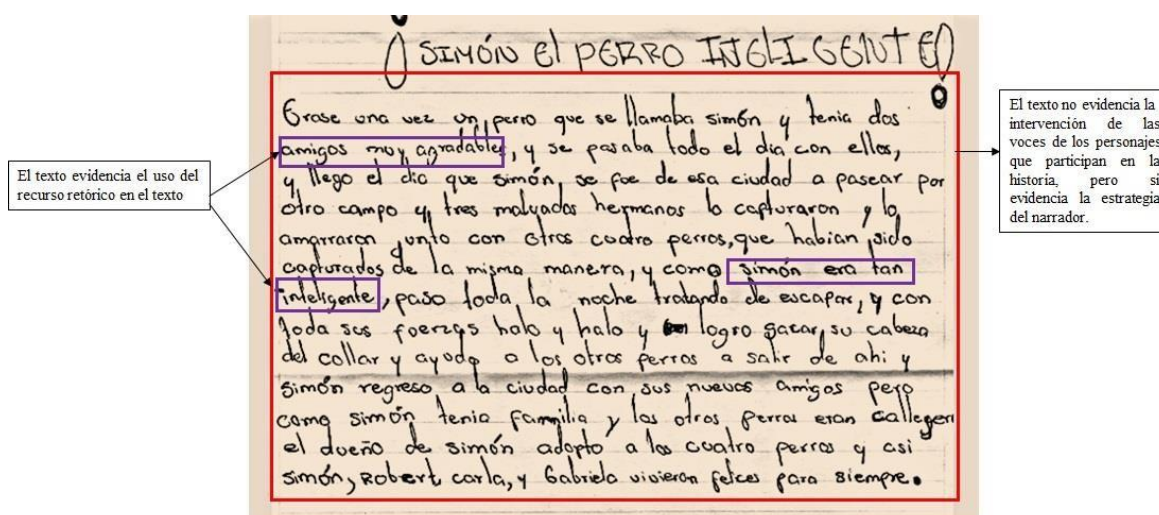 SIMÓN El PERRO INGLIGENTE
Erase una vez un perro que se llamaba simón y tenia dos
amigos muy agradables, y se pasaba todo el dia con ellos,
y llego el dia que simón, se fue de esa ciudad a pasear por
otro campo y tres malvados hermanos lo capturaron y lo
amarraron junto con otros cuatro perros, que habian sido
capturados de la misma manera, y como simón era tan
inteligente, paso toda la noche tratando de escapar, y con
toda sus fuerzas halo y halo y logro sacar su cabeza
del collar y ayudo a los otros perros a salir de ahi y
simón regreso a la ciudad con sus nuevos amigos pero
como simón tenia familia y los otros perros eran callejer
el dueño de simón adopto a los cuatro perros y asi
simón, Robert, carla, y Gabriela vivieron felices para siempre.
El texto evidencia el uso del
recurso retórico en el texto
El texto no evidencia la
intervención de las
voces de los personajes
que participan en la
historia, pero si
evidencia la estrategia
del narrador.